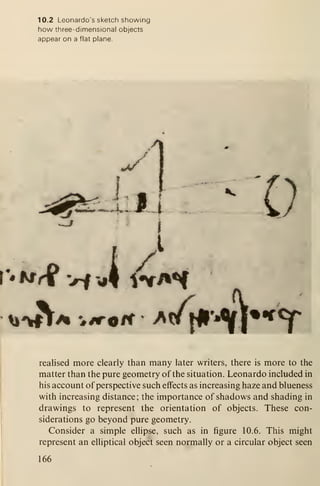 10.2 Leonardo's sketch showing
how three-dimensional objects
appear on a flat plane.
realised more clearly than many later writers, there is more to the
matter than the pure geometry of the situation. Leonardo included in
his account of perspective such effects as increasing haze and blueness
with increasing distance; the importance of shadows and shading in
drawings to represent the orientation of objects. These con-
siderations go beyond pure geometry.
Consider a simple ellipse, such as in figure 10.6. This might
represent an elliptical object seen normally or a circular object seen
166